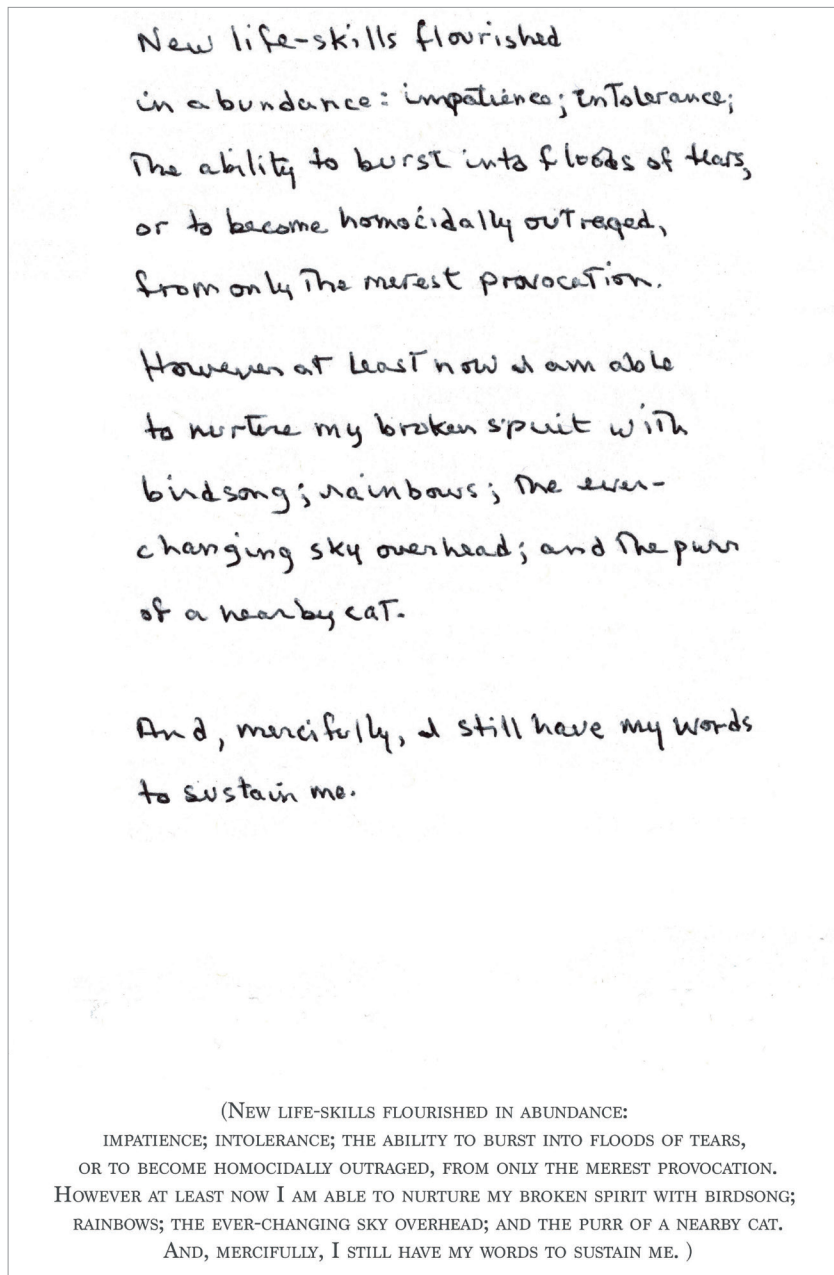 New life-skills flourished
in abundance: impatience; intolerance;
The ability to burst into floods of tears,
or to become homocidally outraged,
from only The merest provocation.
However at least now I am able
to nurture my broken spirit with
birdsong; rainbows; The ever-
changing sky overhead; and The purr
of a nearby cat.
And, mercifully, I still have my words
to sustain me.
(New life-skills flourished in abundance:
impatience; intolerance; the ability to burst into floods of tears,
or to become homocidally outraged, from only the merest provocation.
However at least now I am able to nurture my broken spirit with birdsong;
rainbows; the ever-changing sky overhead; and the purr of a nearby cat.
And, mercifully, I still have my words to sustain me. )